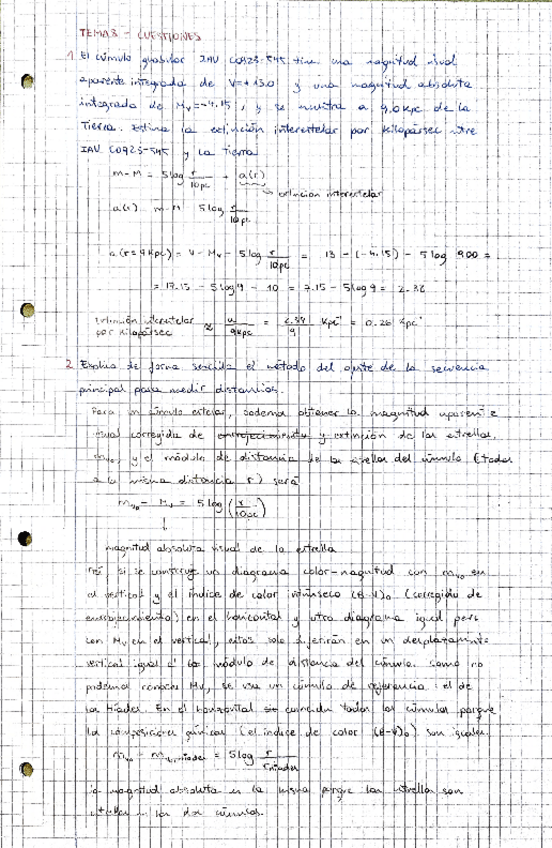 TEMA 3 - CUESTIONES
1 El cúmulo globular IAU C0923-545 tiene una magnitud visual
aparente integrada de V=+13.0 y una magnitud absoluta
integrada de Mv=-4.15, y se encuentra a 9.0 kpc de la
Tierra. Estima la extinción interestelar por kilopársec entre
IAU C0923-545 y la Tierra
m-M = 5 log r/10pc + a(r)
extinción interestelar
a(r) m-M 5 log r/10pc
a(r=9kpc) = V - Mv - 5 log r/10pc = 13 - (-4.15) - 5 log 900 =
= 17.15 - 5 log 9 - 10 = 7.15 - 5 log 9 = 2.38
Extinción interestelar ≈ a/9kpc = 2.38/9 kpc⁻¹ = 0.26 kpc⁻¹
por kilopársec
2 Explica de forma sencilla el método del ajuste de la secuencia
principal para medir distancias.
Para un cúmulo estelar, podemos obtener la magnitud aparente
visual corregida de enrojecimiento y extinción de las estrellas,
mv₀, y el módulo de distancia de las estrellas del cúmulo (todas
a la misma distancia r) será
mv₀ - Mv = 5 log (r/10pc)
magnitud absoluta visual de la estrella
Así, si se construye un diagrama color-magnitud con mv₀ en
el vertical y el índice de color intrínseco (B-V)₀ (corregido de
enrojecimiento) en el horizontal y otro diagrama igual pero
con Mv en el vertical, estos solo diferirán en un desplazamiento
vertical igual al módulo de distancia del cúmulo. Como no
podemos conocer Mv, se usa un cúmulo de referencia: el de
las Híades. En el horizontal se coinciden todos los cúmulos porque
las composiciones químicas (el índice de color (B-V)₀) son iguales.
mv₀ - mv,Híades = 5 log r/rHíades
la magnitud absoluta es la misma porque las estrellas son
en los dos cúmulos.